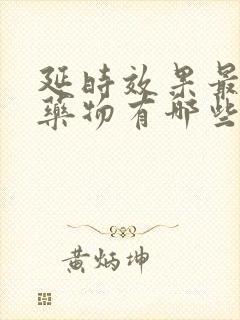 延时效果最
藥物有哪些
黄炳坤